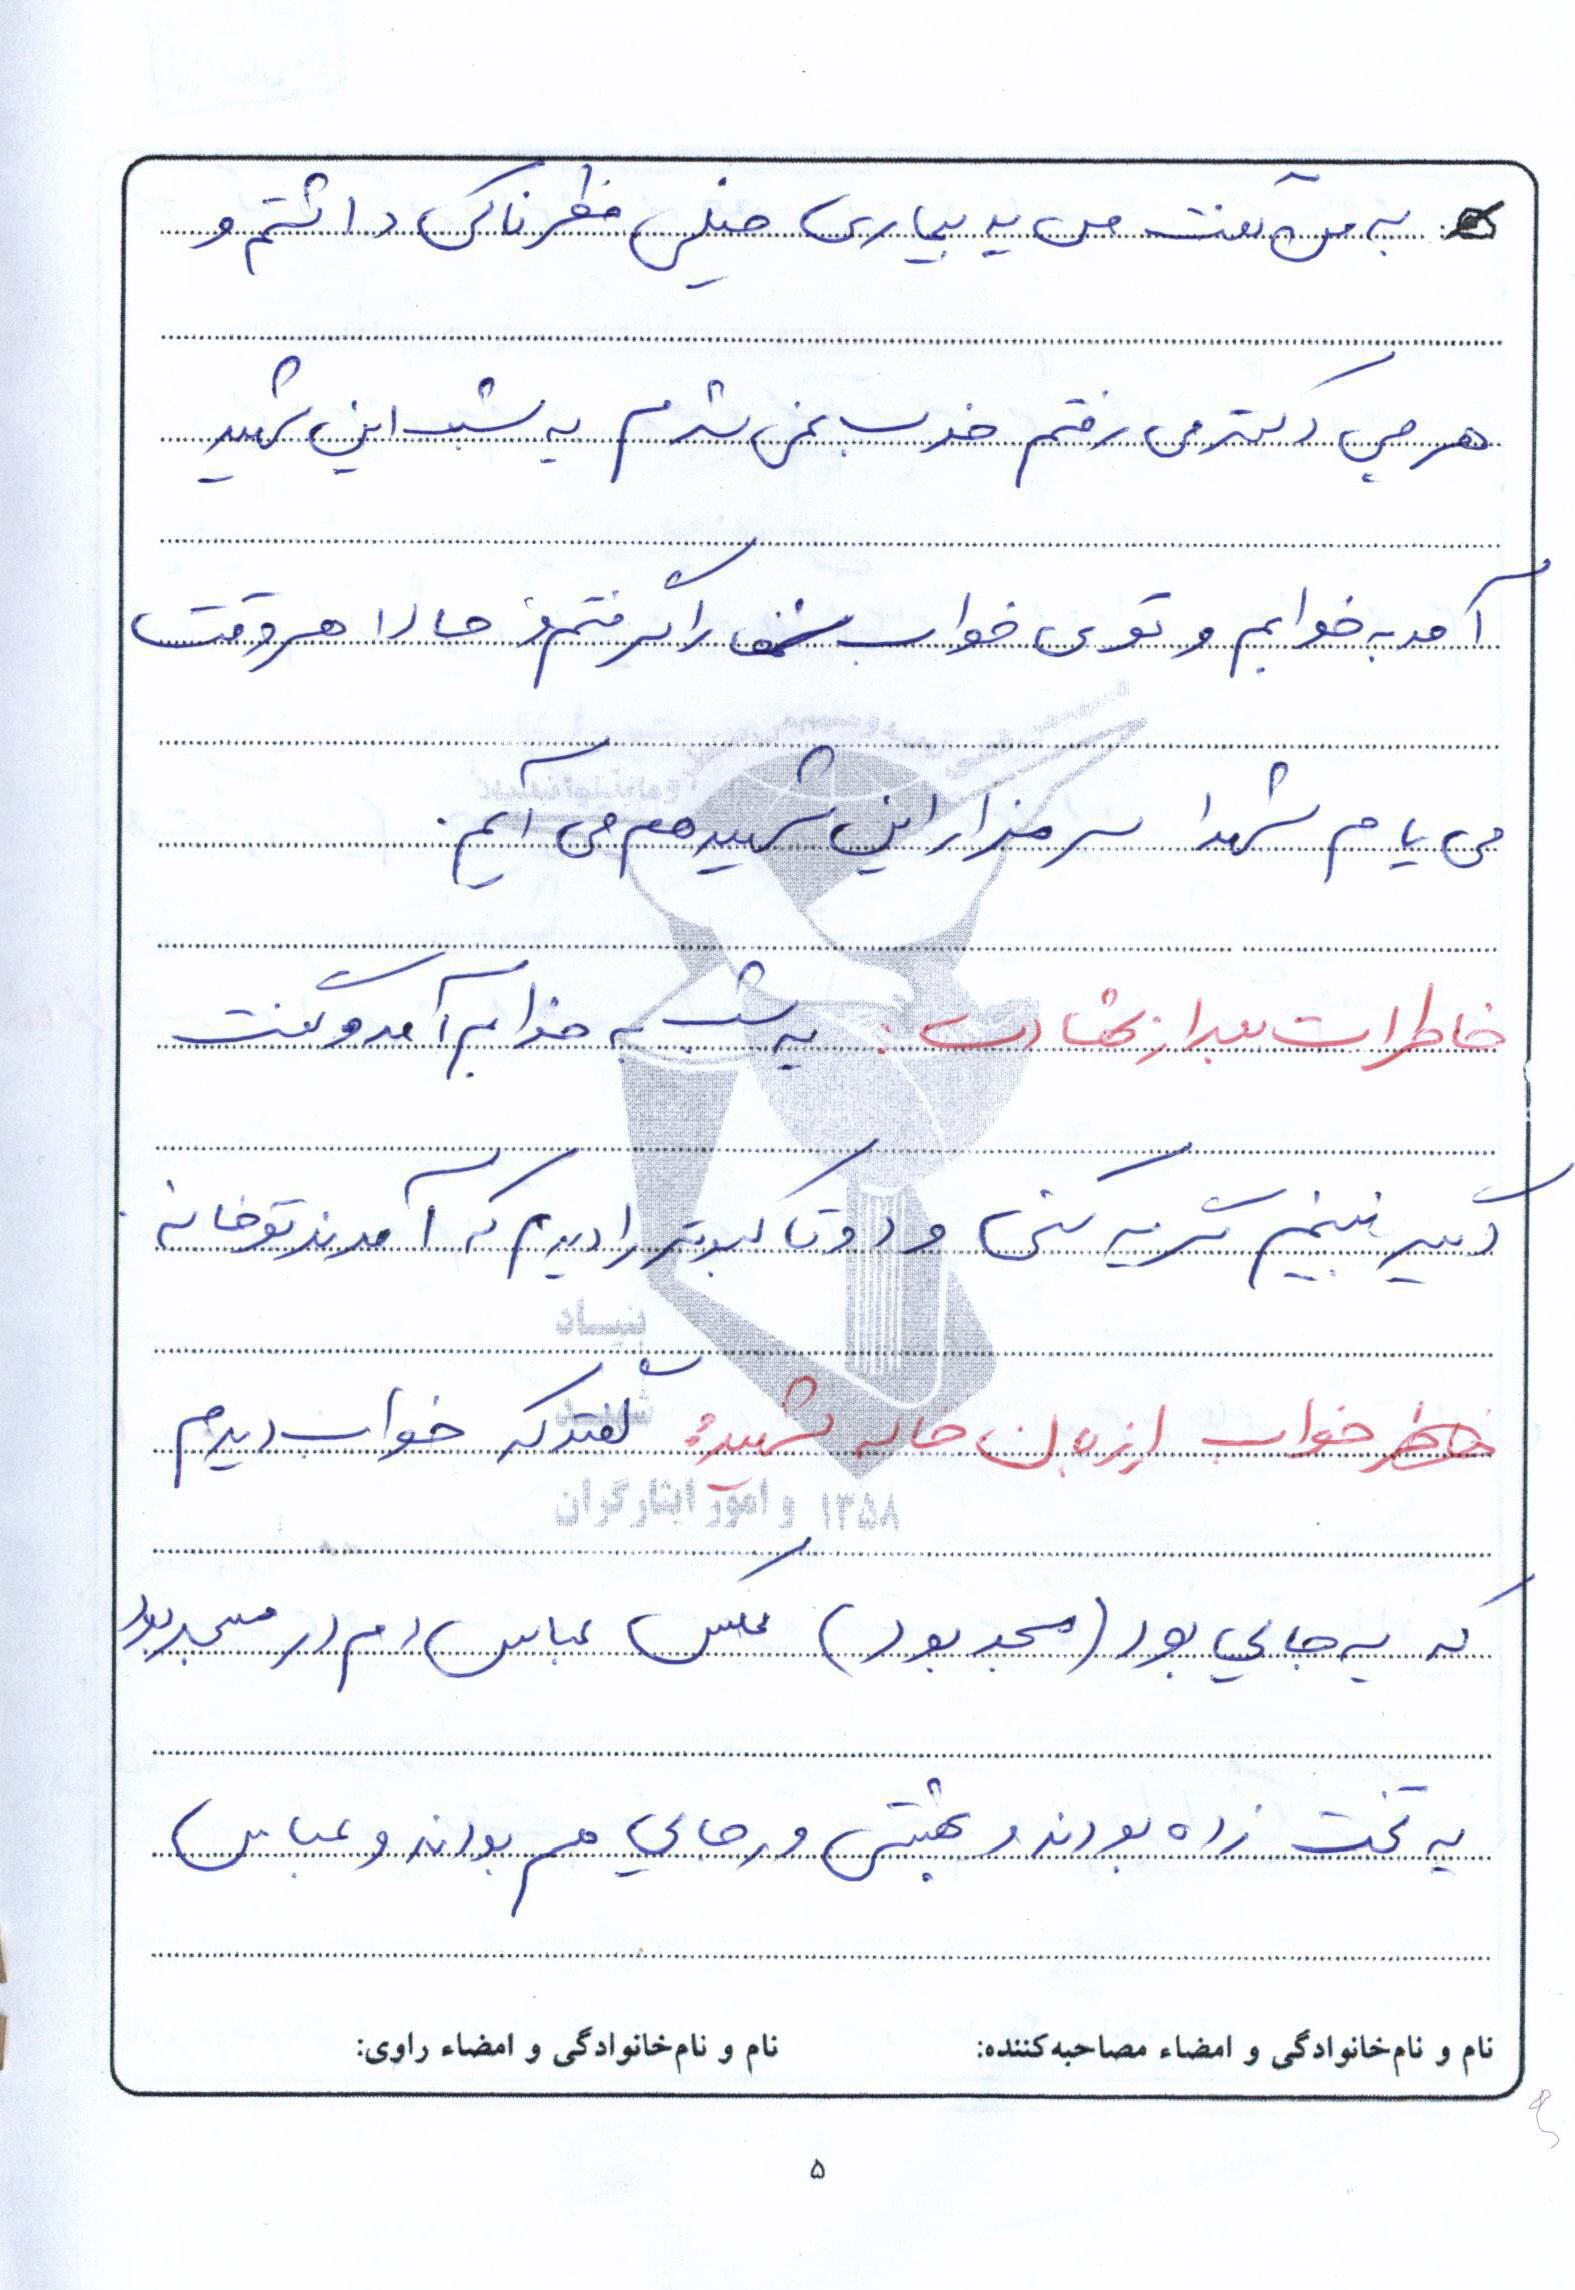 به من گفت من یه بیماری خیلی خطرناکی داشتم و
هر چی دکتر می رفتم خوب نمی شدم یه شب این شهید
آمد به خوابم و توی خواب شفا را گرفتم و حالا هر وقت
می یام شهدا سر مزار این شهید هم می آیم.
خاطرات بعد از شهادت: یه شب به خوابم آمد و گفت
دیگر نبینم گریه کنی و دو تا کبوتر را دیدم که آمدند تو خانه.
خاطر خواب از زبان خاله شهید: گفتند که خواب دیدم
که یه جایی بود (مسجد بود) عکس عباس دم در مسجد بود
یه تخت زده بودند و بهشتی و رجایی هم بودند و عباس
بنیاد
شهید
و امور ایثارگران ۱۳۵۸
نام و نام‌خانوادگی و امضاء مصاحبه‌کننده: نام و نام‌خانوادگی و امضاء راوی:
۵